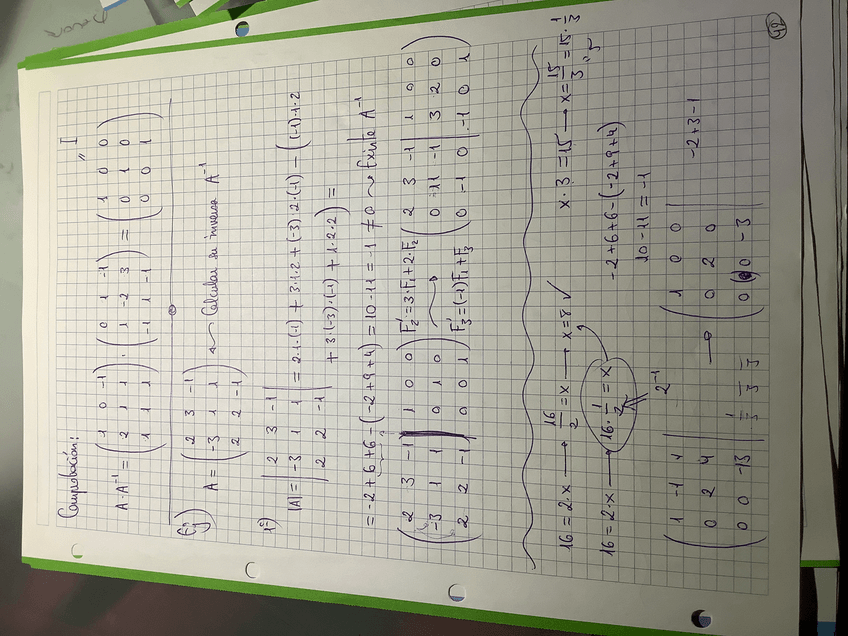 Comprobación: " I
A·A⁻¹ = (1 0 -1; 2 1 1; 1 1 1) · (0 1 -1; 1 -2 3; -1 1 -1) = (1 0 0; 0 1 0; 0 0 1)
Ej) A = (2 3 -1; -3 1 1; 2 2 -1) ← Calcular su inversa A⁻¹
1º) |A| = |2 3 -1; -3 1 1; 2 2 -1| = 2·1·(-1) + 3·1·2 + (-3)·2·(-1) - ((-1)·1·2
+ 3·(-3)·(-1) + 1·2·2) =
= -2+6+6-(-2+9+4) = 10-11 = -1 ≠ 0 ⇝ Existe A⁻¹
(2 3 -1 | 1 0 0; -3 1 1 | 0 1 0; 2 2 -1 | 0 0 1) F₂'=3·F₁+2·F₂ → F₃'=(-1)F₁+F₃ (2 3 -1 | 1 0 0; 0 11 -1 | 3 2 0; 0 -1 0 | -1 0 1)
16 = 2·x → 16/2 = x → x=8 ✓ x·3=15 → x = 15/3 = 15·1/3
16 = 2·x → 16·1/2 = x -2+6+6-(-2+9+4)
2⁻¹ 10-11=-1
(1 -1 4; 0 2 4; 0 0 -13 | → 1 0 0; 0 2 0; 0 0 -3) -2+3-1
42